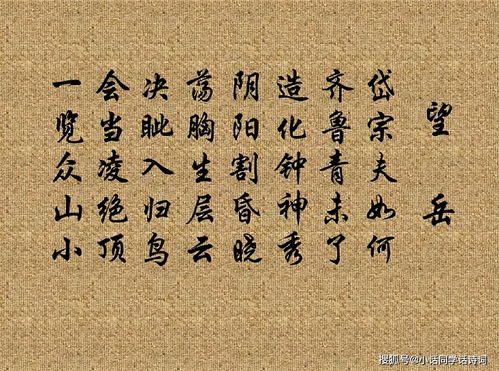 望岳
岱宗夫如何
齐鲁青未了
造化钟神秀
阴阳割昏晓
荡胸生层云
决眦入归鸟
会当凌绝顶
一览众山小
搜狐号@小话同学话诗词